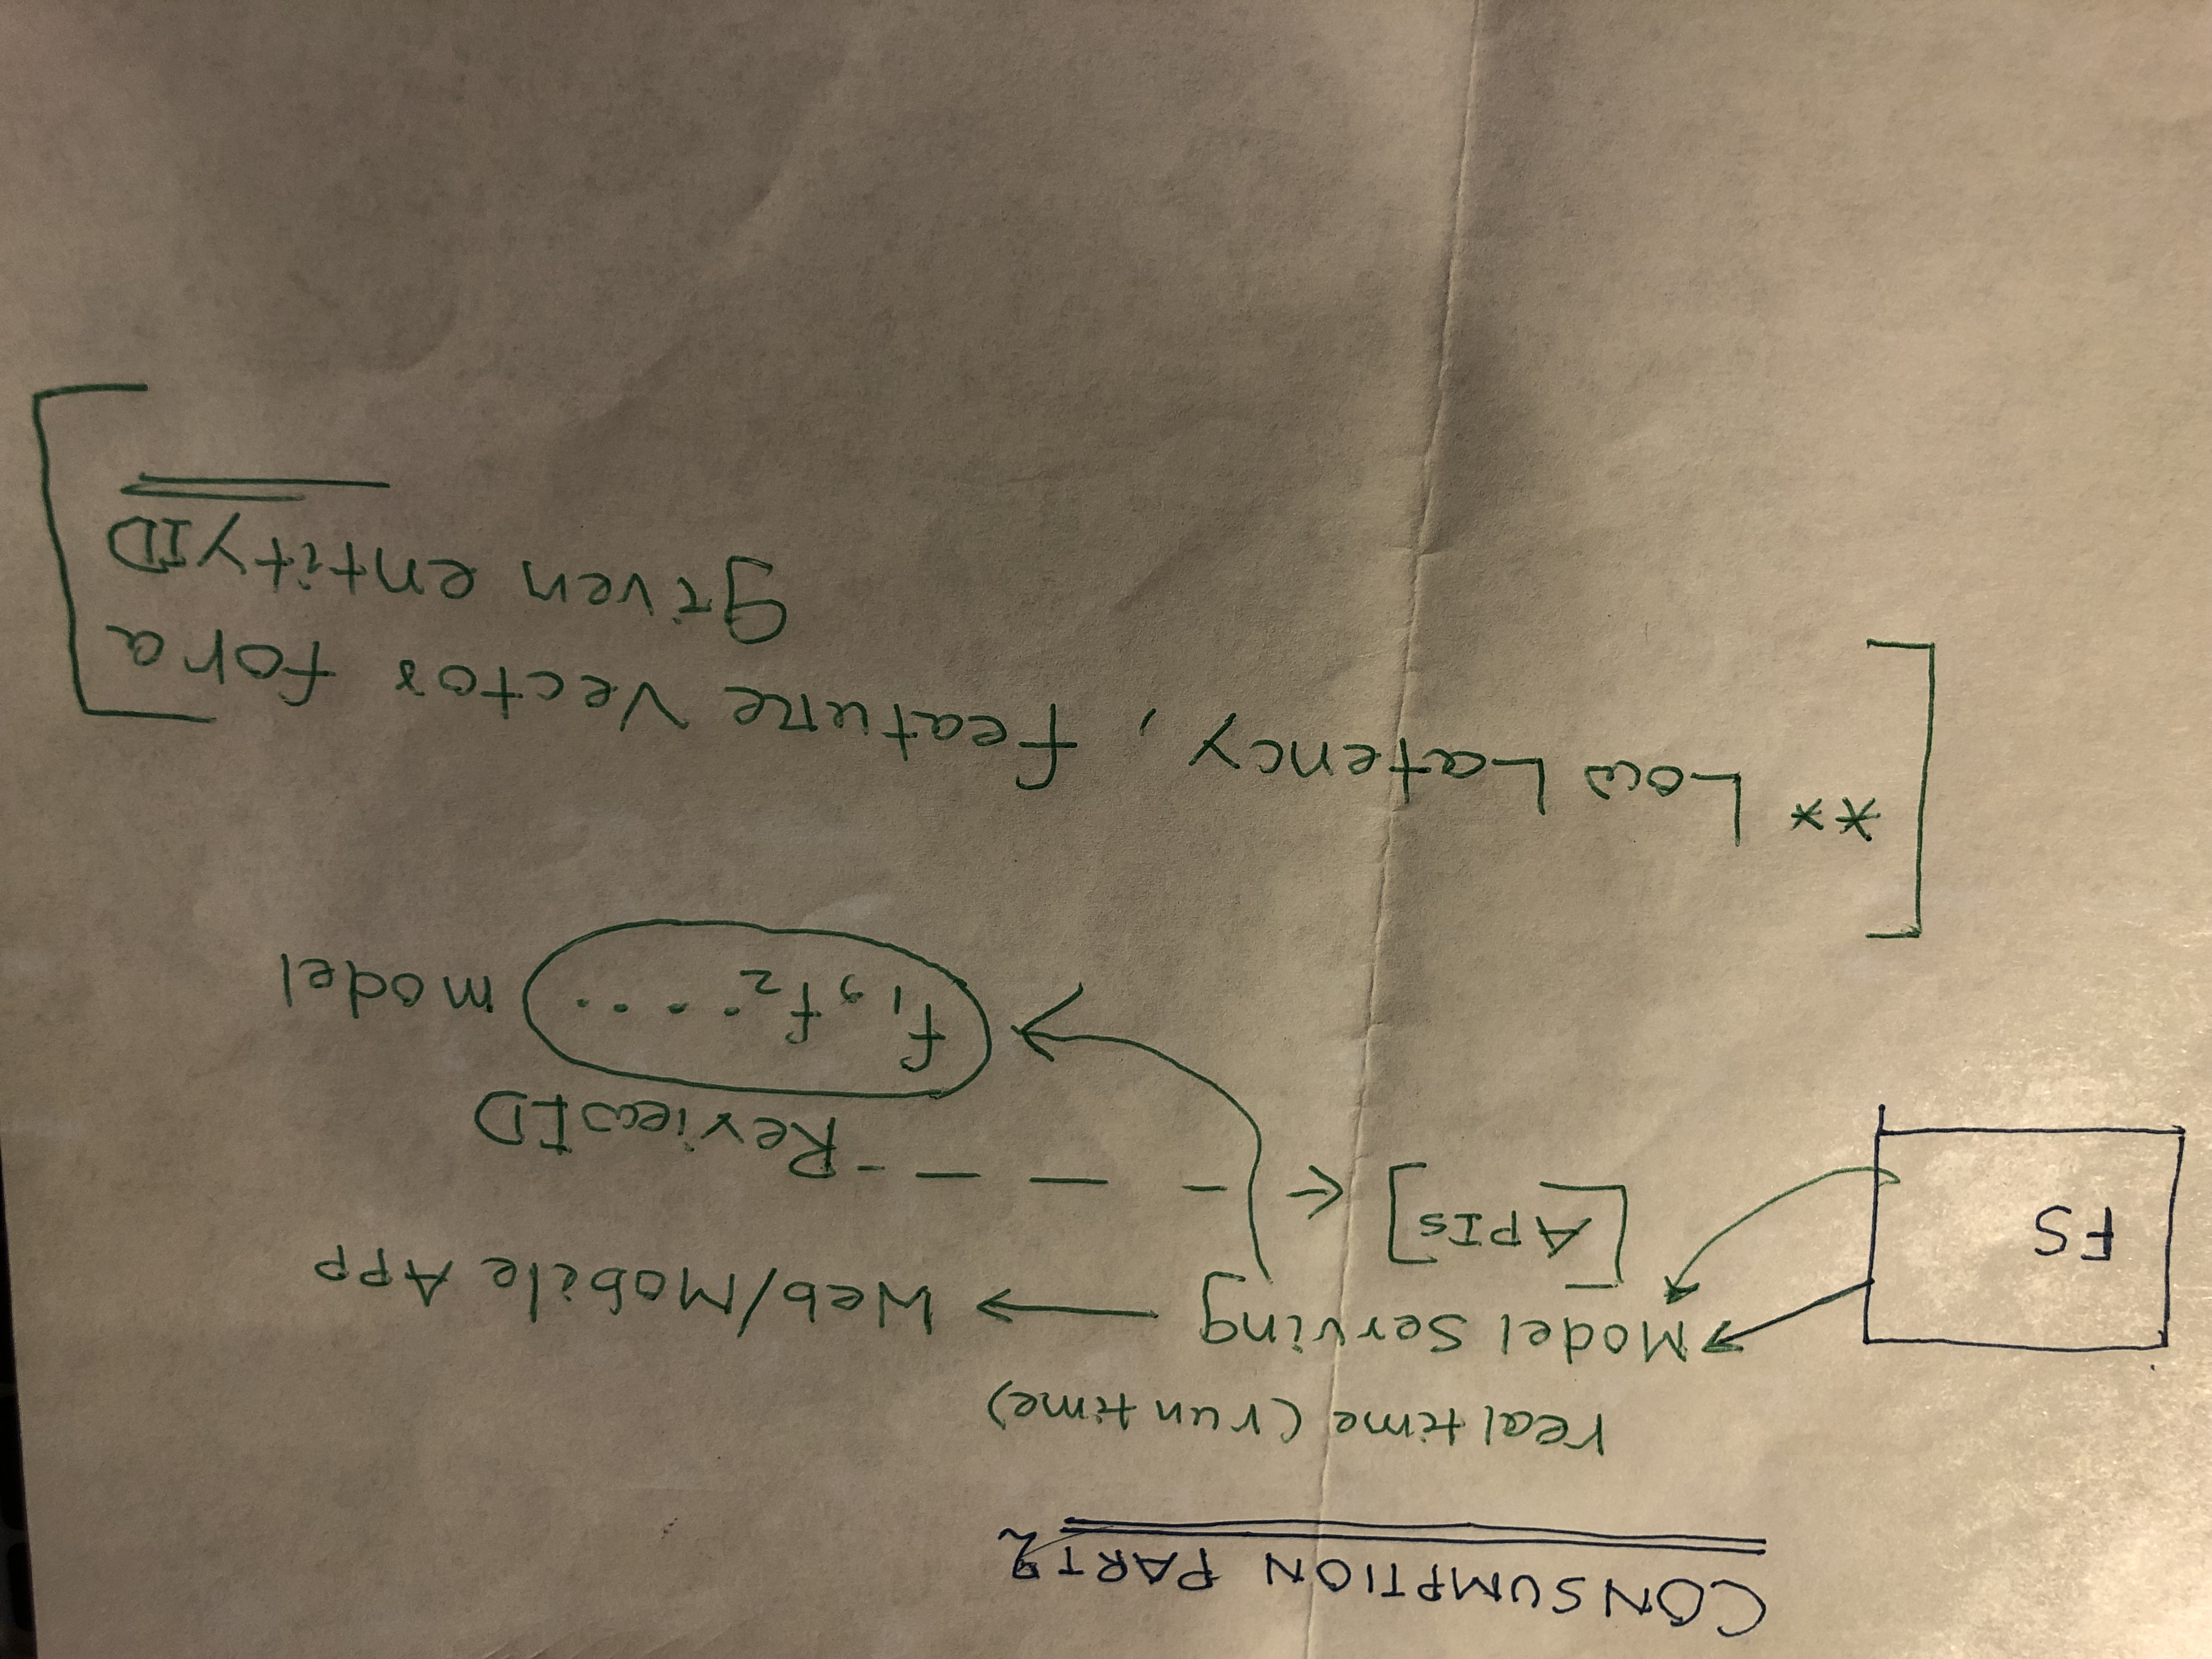 CONSUMPTION PART 2
real time (run time)
Model Serving → Web/Mobile App
FS
[APIs] ← - - - - ReviewID
f1, f2 ..... model
** Low Latency, feature Vector for a
given entityID